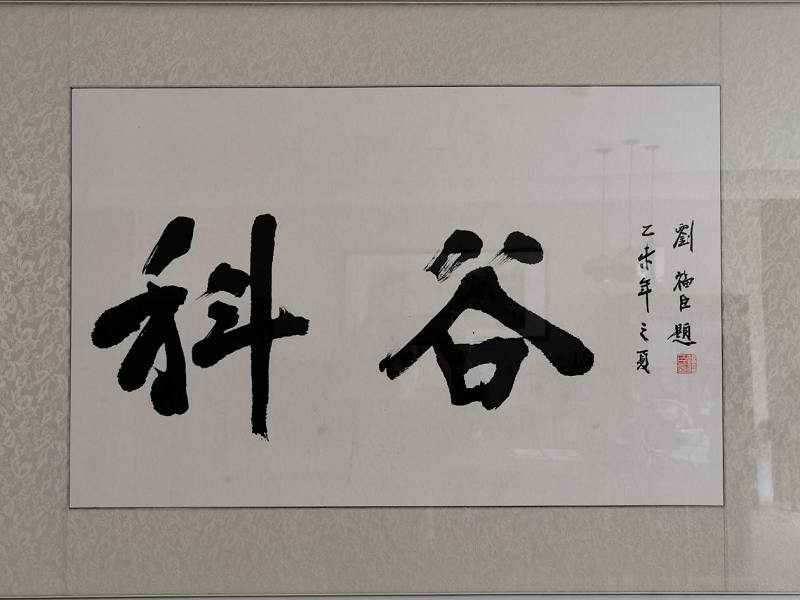 科谷
乙未年之夏
劉福臣題